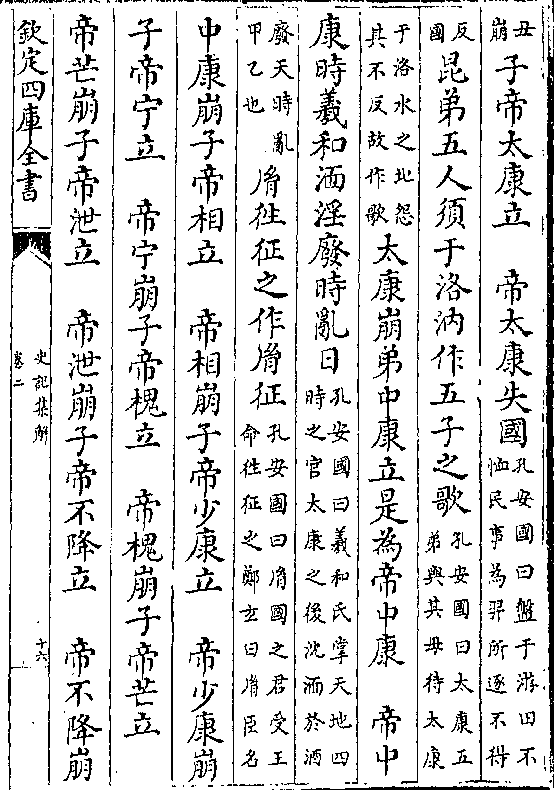 丑崩子帝太康立　帝太康失國孔安國曰盤于游田不恤民事為羿所逐不得
反國昆弟五人須于洛汭作五子之歌孔安國曰太康五弟與其母待太康
于洛水之北怨其不反故作歌太康崩弟中康立是為帝中康　帝中
康時羲和湎淫廢時亂日孔安國曰羲和氏掌天地四時之官太康之後沈湎於酒
廢天時亂甲乙也𦙍往征之作𦙍征孔安國曰𦙍國之君受王命往征之鄭玄曰𦙍臣名
中康崩子帝相立　帝相崩子帝少康立　帝少康崩
子帝宁立　帝宁崩子帝槐立　帝槐崩子帝芒立
帝芒崩子帝泄立　帝泄崩子帝不降立　帝不降崩
欽定四庫全書
史記集解
卷二
十六